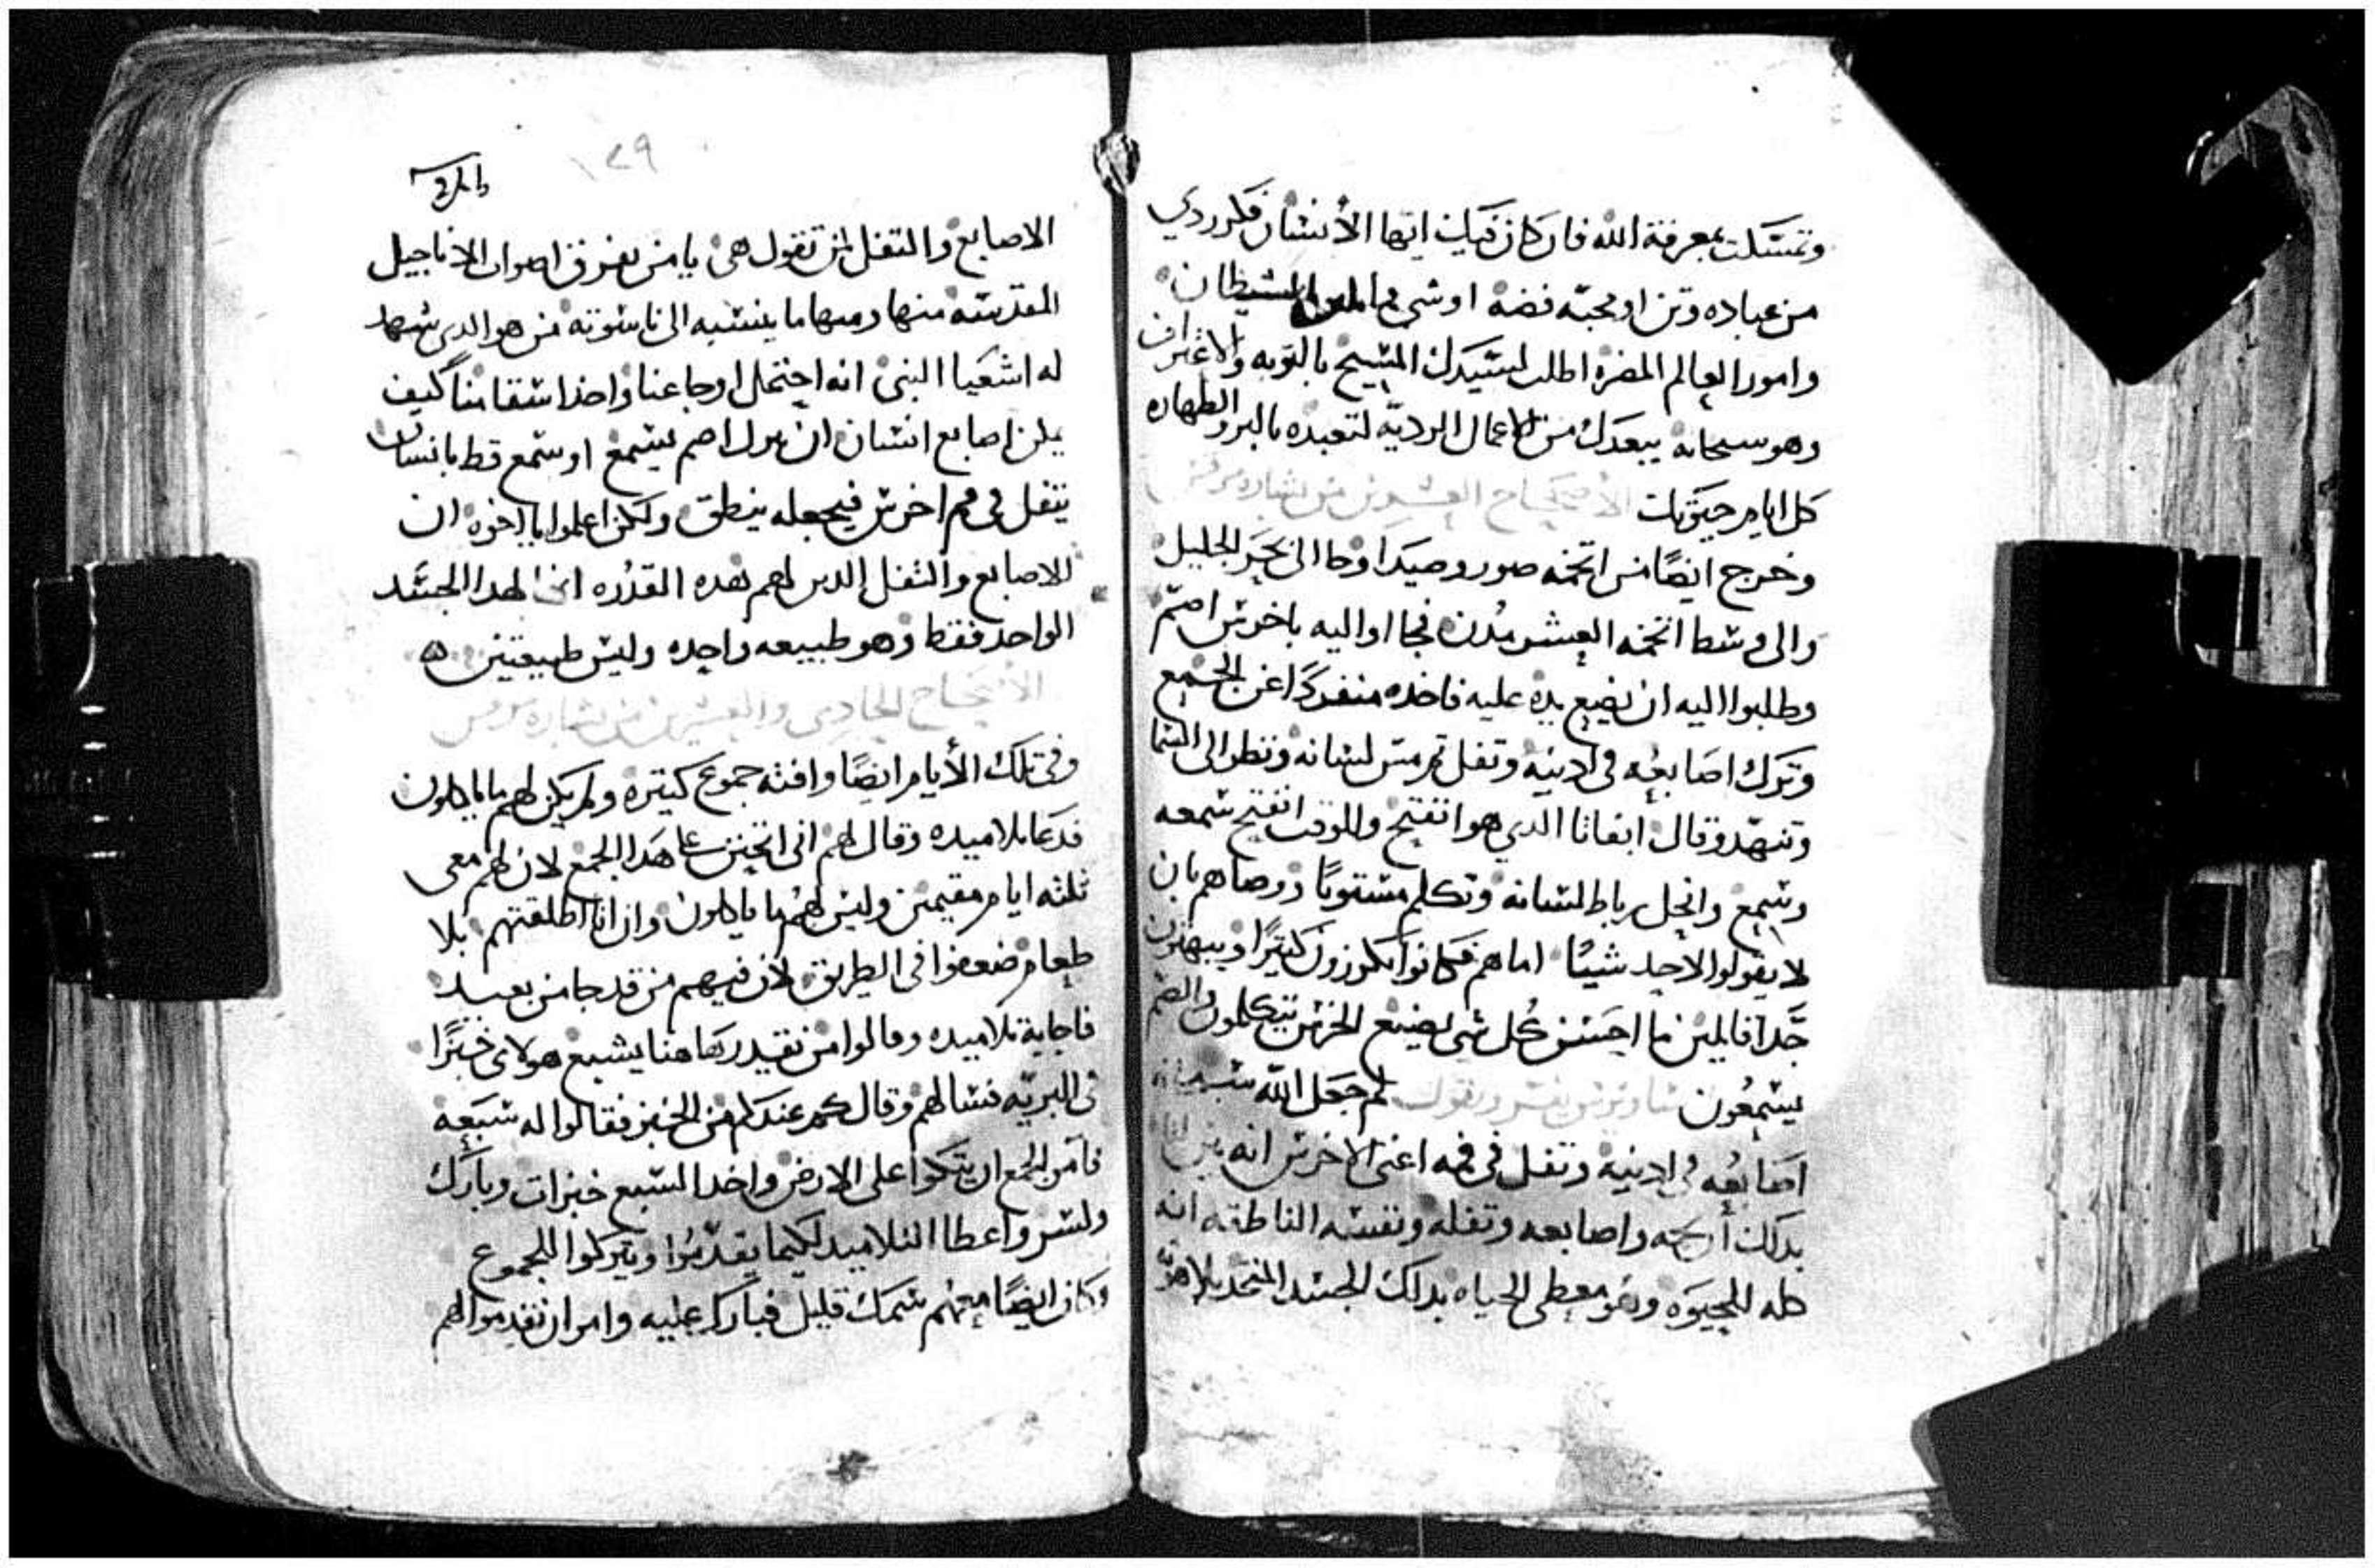 وتمسكت بمعرفة الله فان كان فيك ايها الأنسان فكر ردي
من عباده وتن او محبة فضه او شي مما للشيطان
وامور العالم المضره اطلب لسيدك المسيح بالتوبه والاعتراف
وهو سبحانه يبعدك من الاعمال الرديه لتعبده بالبر والطهاره
كل ايام حيوتك الأصحاح العشرين من بشارة مرقس
وخرج ايضًا من اتخمه صور وصيدا وجا الى بحر الجليل
والى وسط اتخمه العشر مدن فجااوا اليه باخرس اصم
وطلبوا اليه ان يضع يده عليه فاخده منفردًا عن الجمع
وترك اصابعه في ادنيه وتفل تم مس لسانه ونظر الى السما
وتنهد وقال ابفاتا الدي هو انفتح وللوقت انفتح سمعه
وسمع وانحل رباط لسانه وتكلم مستويًا ووصاهم بان
لا يقولوا لاحد شيئًا اما هم فكانوا يكرزون كتيرًا ويبهتون
جدا قايلين ما احسن كل شي يصنع الخرس يتكلمون والصم
يسمعون ساويرس يفسر ويقول لم جعل الله
اصابعه في ادنيه وتفل في فمه اعني الاخرس انه
بدلك واصابعه وتفله ونفسه الناطقه انه
كله للحيوه وهو معطي الحياه بدلك الجسد المتحد
١٢٩
الاصابع والتفل لمن تقول هي يا من يفرق اصوات الاناجيل
المقدسه منها ومنها ما ينسبه الى ناسوته من هو الدي شهد
له اشعيا النبي انه احتمل اوجاعنا واخذ اسقامنا كيف
يمكن اصابع انسان ان يترك اصم يسمع او سمع قط بانسان
يتفل في فم اخرس فيجعله ينطق ولكن اعلموا يا اخوه ان
الاصابع والتفل الدين لهم هده القدره انما لهدا الجسد
الواحد فقط وهو طبيعه واحده وليس طبيعتين
الأصحاح الحادي والعشرين من بشارة مرقس
وفي تلك الأيام ايضًا وافته جموع كتيره ولم يكن لهم ما ياكلون
فدعا تلاميده وقال لهم اني اتحنن على هدا الجمع لان لهم معي
ثلثه ايام مقيمين وليس لهم ما ياكلون وان انا اطلقتهم بلا
طعام ضعفوا في الطريق لان فيهم من قد جا من بعيد
فاجابه تلاميده وقالوا من يقدر هاهنا يشبع هولاي خبزًا
في البريه فسالهم وقال كم عندكم من الخبز فقالوا له سبعه
فامر الجمع ان يتكوا على الارض واخد السبع خبزات وبارك
وكسر واعطا التلاميد لكيما يقدموا ويتركوا للجموع
وكان ايضًا معهم سمك قليل فبارك عليه وامر ان تقدموا لهم